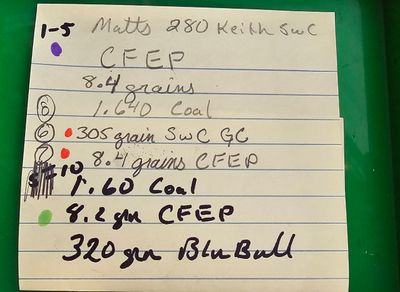 1-5 Matts 280 Keith SWC
CFEP
8.4 grains
1.640 Coal
6 305 grain SWC GC
8.4 grains CFEP
10 1.60 Coal
8.2 grn CFEP
320 grn Blu Bull